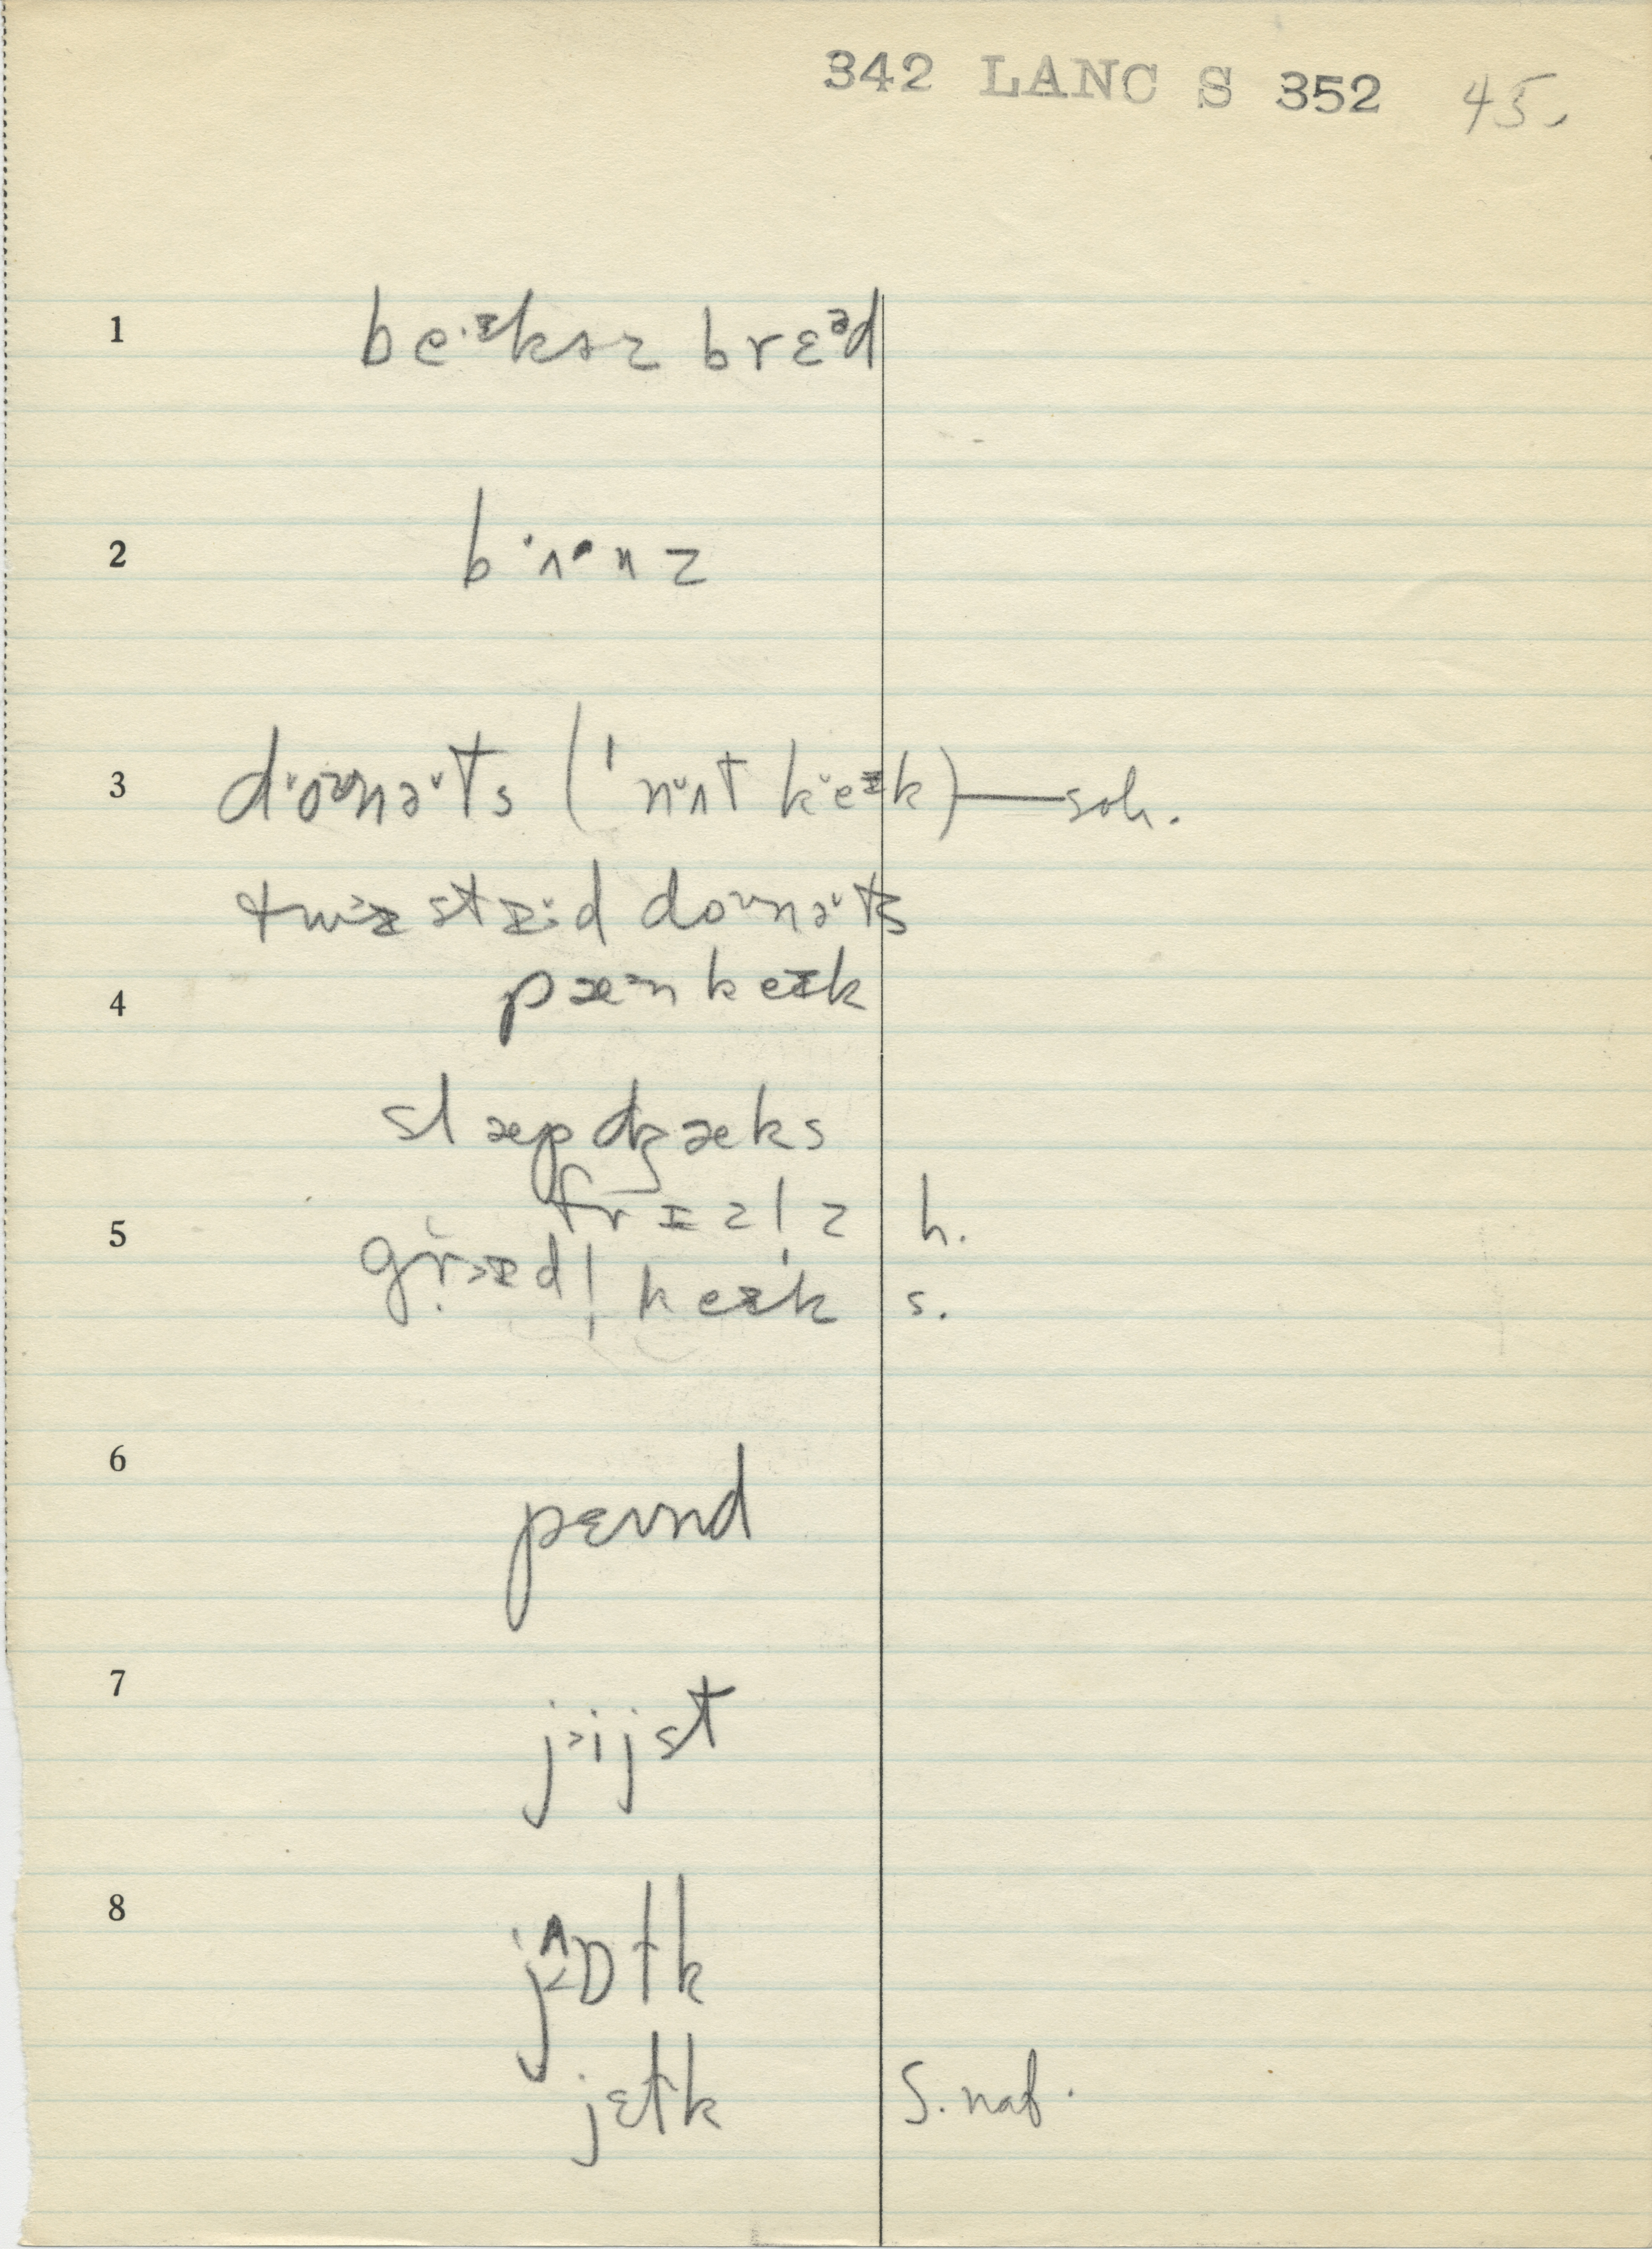 342 LANC S 352 45.
1 be·ᶦkɚz brɛᵊd
2 b·ʌ·nz
3 do·ᶷnə·ts (ˈn·ʌt ke·ɪk) — soh.
twɪ·stɪ·d doᶷnə·ts
4 pæᵊnkeɪk
slæpdʒæks
frɪzl̩z h.
5 grɪdl̩ keɪk s.
6 pɛʊnd
7 jɪijst
8 jʌɒɫk
jɛɫk S. nat.